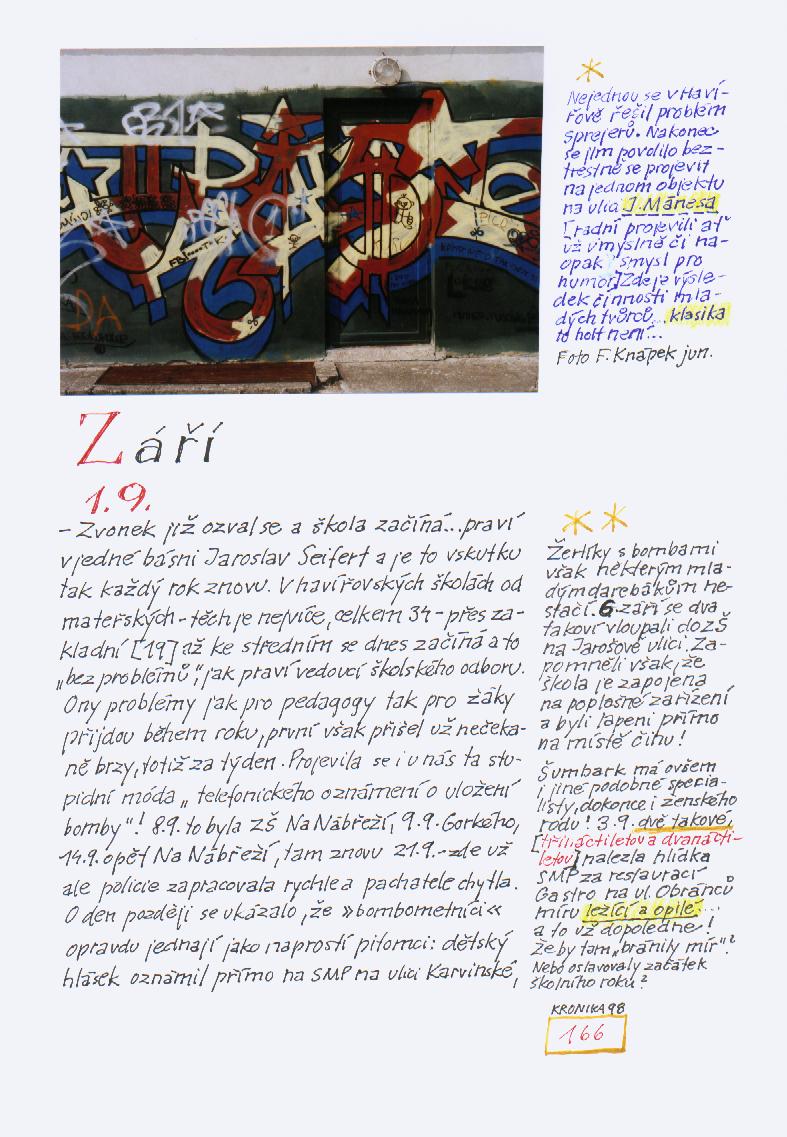 *
Nejednou se v Haví-
řově řečil problém
sprejerů. Nakonec
se jim povolilo bez-
trestně se projevit
na jednom objektu
na ulici J. Mánesa
[radní projevili ať
už úmyslně či na-
opak smysl pro
humor] Zde je výsle-
dek činnosti mla-
dých tvůrců... klasika
to holt není...
Foto F. Knápek jun.
Září
1.9.
– Zvonek již ozval se a škola začíná... praví
v jedné básni Jaroslav Seifert a je to vskutku
tak každý rok znovu. V havířovských školách od
mateřských - těch je nejvíce, celkem 34 - přes zá-
kladní [19] až ke středním se dnes začíná a to
„bez problémů", jak praví vedoucí školského odboru.
Ony problémy jak pro pedagogy tak pro žáky
přijdou během roku, první však přišel už nečeka-
ně brzy, totiž za týden. Projevila se i u nás ta stu-
pidní móda „telefonického oznámení o uložení
bomby"! 8.9. to byla ZŠ Na Nábřeží, 9.9. Gorkého,
14.9. opět Na Nábřeží, tam znovu 21.9. - zde už
ale policie zapracovala rychle a pachatele chytla.
O den později se ukázalo, že »bombometníci«
opravdu jednají jako naprostí pitomci: dětský
hlásek oznámil přímo na SMP na ulici Karvinské,
* *
Žertíky s bombami
však některým mla-
dým darebákům ne-
stačí. 6. září se dva
takoví vloupali do ZŠ
na Jarošově ulici. Za-
pomněli však, že
škola je zapojena
na poplošné zařízení
a byli lapeni přímo
na místě činu!
Šumbark má ovšem
i jiné podobné specia-
listy, dokonce i ženského
rodu! 3.9. dvě takové,
[třináctiletou a dvanácti-
letou] nalezla hlídka
SMP za restaurací
Gastro na ul. Obránců
míru ležící a opilé...
a to už dopoledne!
Že by tam „bránily mír"?
Nebo oslavovaly začátek
školního roku?
KRONIKA 98
166